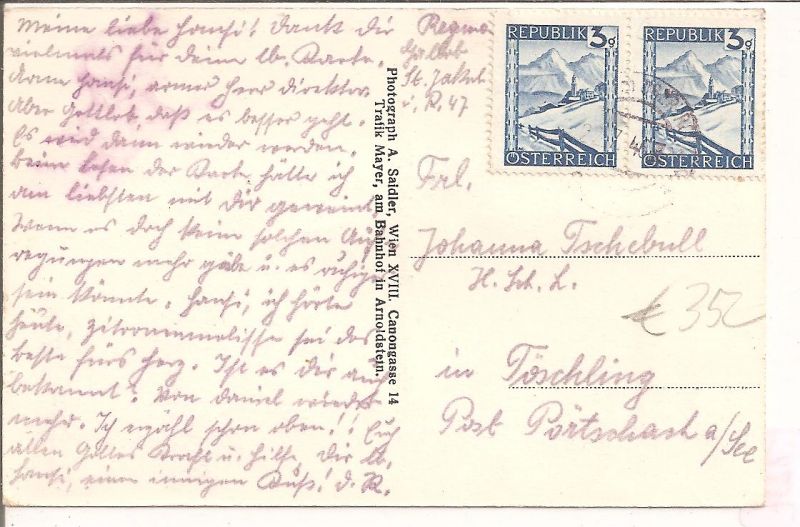 Meine liebe Hansi! Dank dir
vielmals für deine lb. Karte.
Arme Hansi, armer Herr Direktor
Aber Gottlob, daß es besser geht.
Es wird dann wieder werden.
Beim Lesen der Karte hätte ich
am liebsten mit dir geweint
Wenn es doch keine solchen Auf
regungen mehr gäbe u. es ruhiger
sein könnte. Hansi, ich hörte
heute, Zitronenmelisse sei das
beste fürs Herz. Ist es dir auch
bekannt? Von Daniel wieder
mehr. Ich erzähl schon oben!! Euch
allen Gottes Kraft u. Hilfe, Dir lb.
Hansi, einen innigen Kuß! d. R.
Photograph A. Saidler, Wien XVIII. Canongasse 14
Trafik Mayer, am Bahnhof in Arnoldstein.
St. Jakob
i. R. 47
REPUBLIK 3g
ÖSTERREICH
REPUBLIK 3g
ÖSTERREICH
Frl.
Johanna Tschebull
H. Sch. L.
€ 352
in Töschling
Post Pörtschach a/See